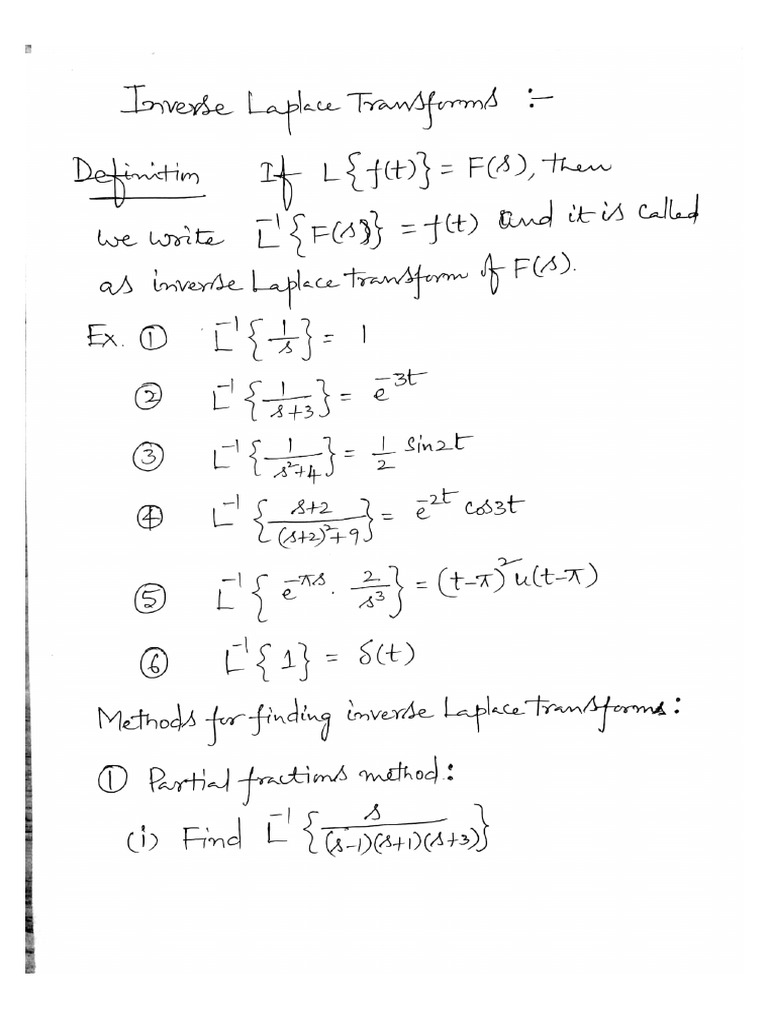 Inverse Laplace Transforms :-
Definition If L{f(t)} = F(s), then
we write L⁻¹{F(s)} = f(t) and it is called
as inverse Laplace transform of F(s).
Ex. ① L⁻¹{1/s} = 1
② L⁻¹{1/(s+3)} = e^(-3t)
③ L⁻¹{1/(s²+4)} = 1/2 sin2t
④ L⁻¹{(s+2)/((s+2)²+9)} = e^(-2t) cos3t
⑤ L⁻¹{e^(-πs) · 2/s³} = (t-π)² u(t-π)
⑥ L⁻¹{1} = δ(t)
Methods for finding inverse Laplace transforms:
① Partial fractions method:
(i) Find L⁻¹{s/((s-1)(s+1)(s+3))}